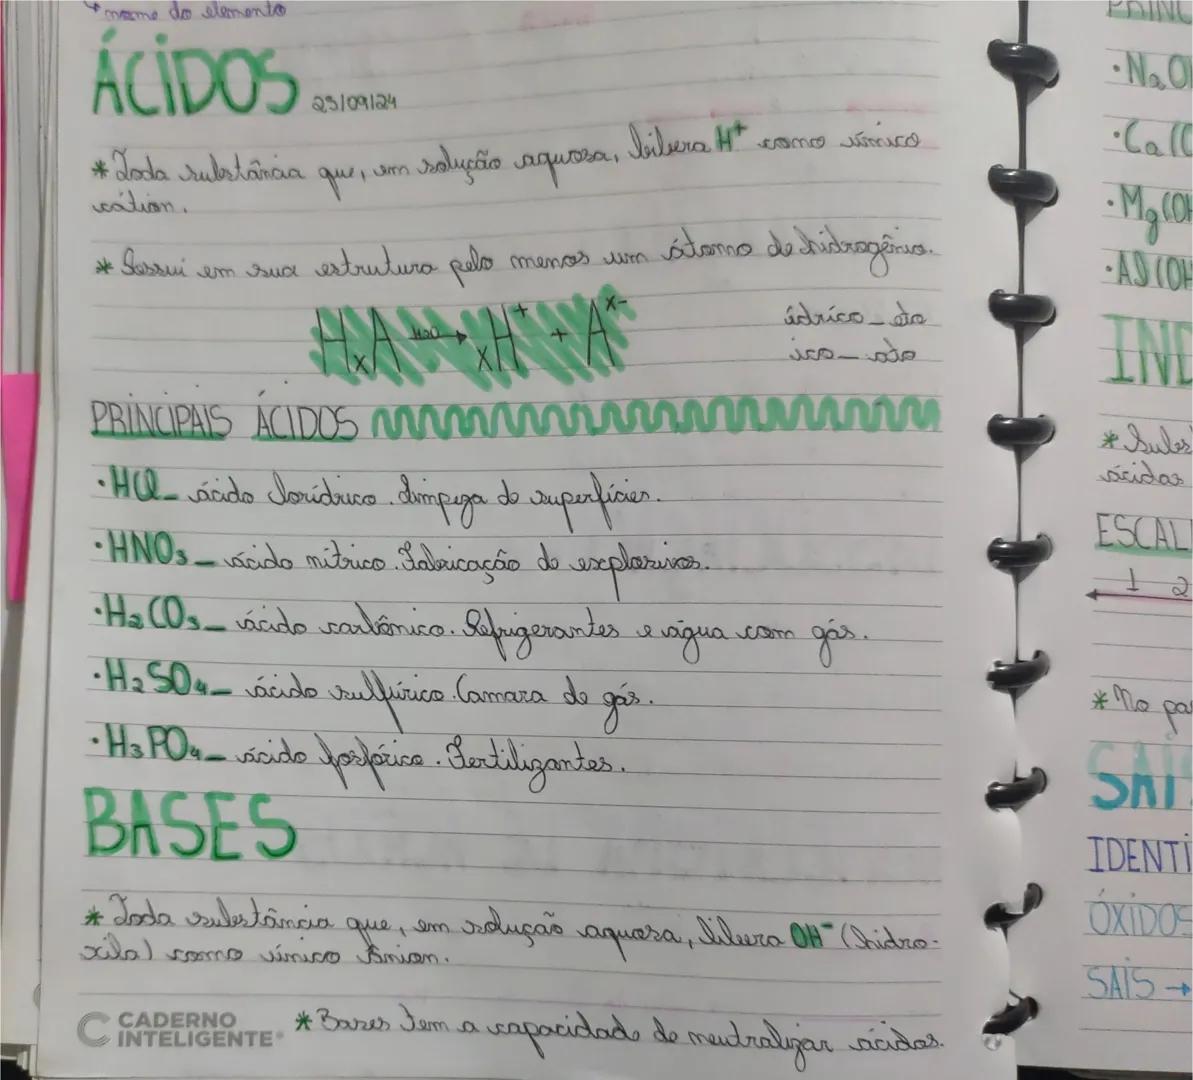 nome do elemento
ÁCIDOS 23/09/24
* Toda substância que, em solução aquosa, libera H⁺ como único
cátion.
* Possui em sua estrutura pelo menos um átomo de hidrogênio.
HₓA H₂O→ ₓH⁺ + Aˣ⁻
ídrico_eto
ico_ato
PRINCIPAIS ÁCIDOS
·HCl_ ácido clorídrico. Limpeza de superfícies.
·HNO₃_ ácido nítrico. Fabricação de explosivos.
·H₂CO₃_ ácido carbônico. Refrigerantes e água com gás.
·H₂SO₄_ ácido sulfúrico. Camara de gás.
·H₃PO₄_ ácido fosfórico. Fertilizantes.
BASES
* Toda substância que, em solução aquosa, libera OH⁻ (hidro-
xila) como único ânion.
* Bases tem a capacidade de neutralizar ácidos.
CADERNO
INTELIGENTE
PRINC
·NaOH
·Ca(O
·Mg(OH
·Al(OH
IND
* Subs
ácidas
ESCAL
1 2
* No pa
SAIS
IDENTI
ÓXIDOS
SAIS →